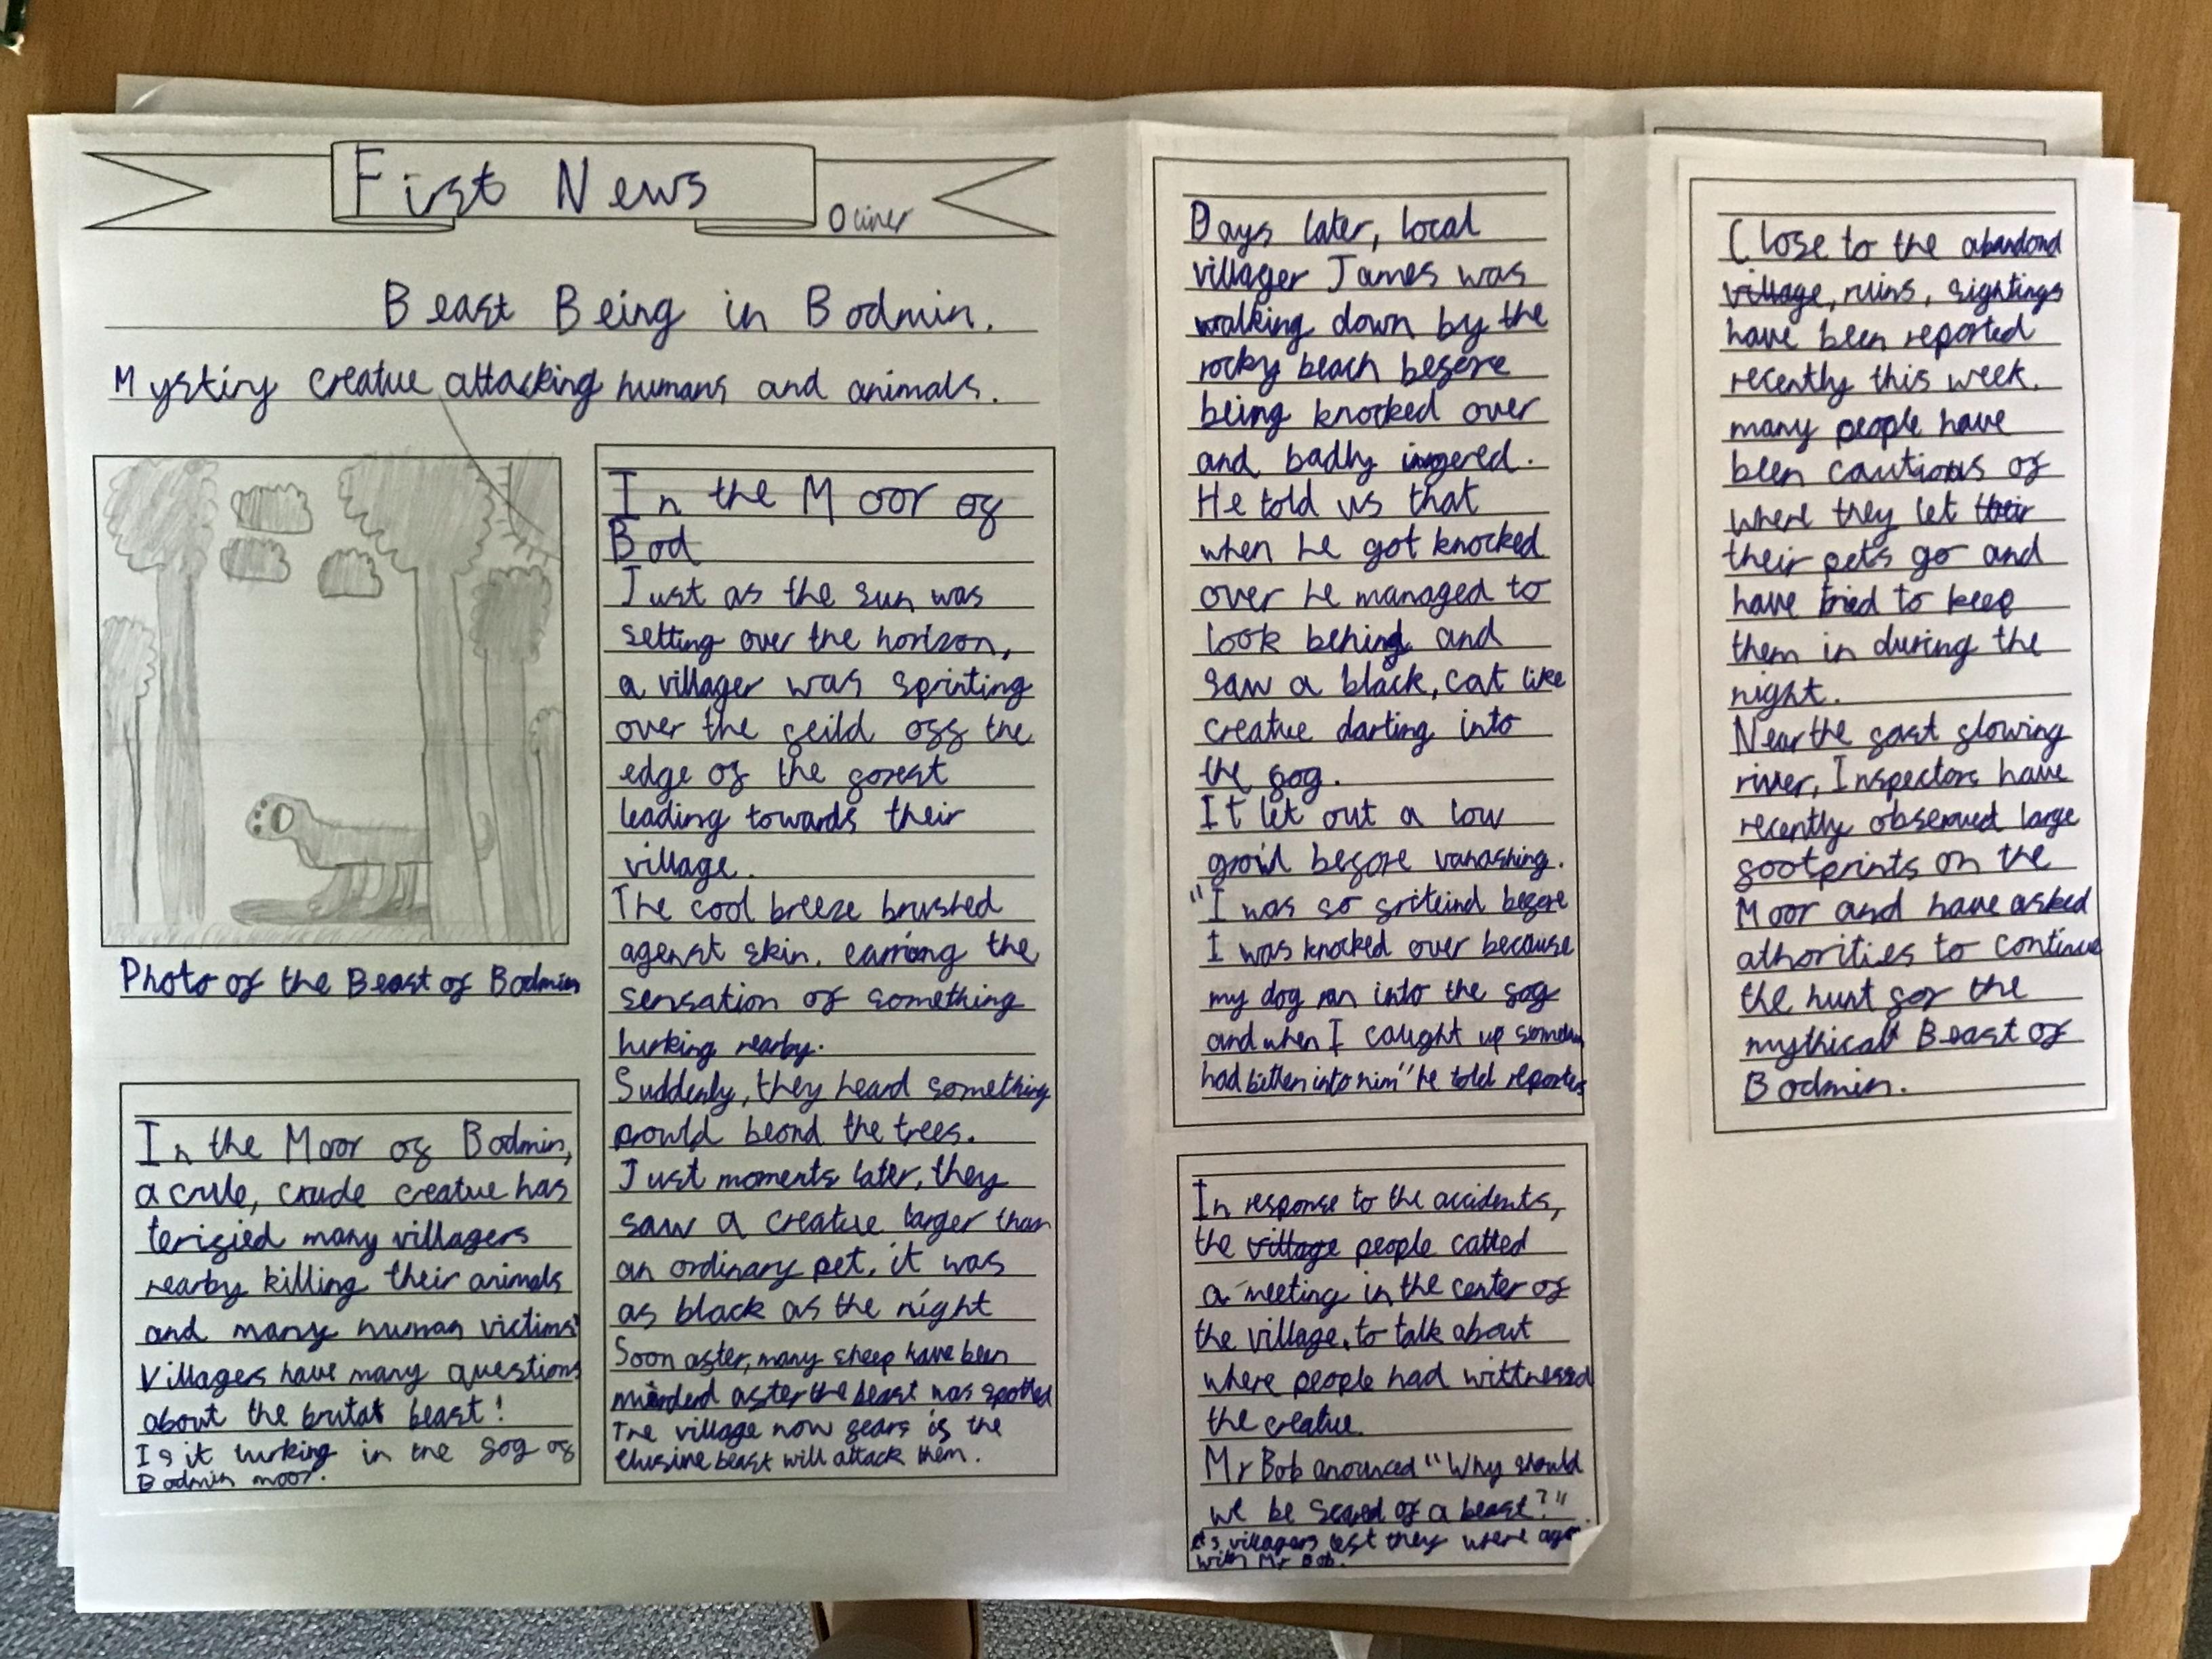 First News
Oliver
Beast Being in Bodmin.
Mystiry creatue attacking humans and animals.
Photo of the Beast of Bodmin
In the Moor of Bodmin,
a crule, crude creatue has
terified many villagers
nearby killing their animals
and many human victims!
Villagers have many questions
about the brutal beast!
Is it lurking in the fog of
Bodmin moor.
In the Moor of
Bod
Just as the sun was
setting over the horizon,
a villager was sprinting
over the feild off the
edge of the forest
leading towards their
village.
The cool breeze brushed
agenst skin, the
sensation of something
lurking nearby.
Suddenly, they heard something
prowld beond the trees.
Just moments later, they
saw a creatue larger than
an ordinary pet, it was
as black as the night
Soon after, many sheep have been
murderd after the beast was spotted
The village now fears if the
elusive beast will attack them.
Days later, local
villager James was
walking down by the
rocky beach before
being knocked over
and badly ingered.
He told us that
when he got knocked
over he managed to
look behind and
saw a black, cat like
creatue darting into
the fog.
It let out a low
growl before vanashing.
"I was so friteind before
I was knocked over because
my dog ran into the fog
and when I caught up
had bitten into him" he told reporters
In response to the accidents,
the village people called
a meeting in the center of
the village, to talk about
where people had wittnessed
the creatue.
Mr Bob anounced "Why should
we be scared of a beast?"
villagers they where
with Mr Bob.
Close to the abandond
village, ruins, sightings
have been reported
recently this week.
many people have
been cautious of
where they let their
their pets go and
have tried to keep
them in during the
night.
Near the fast flowing
river, Inspectors have
recently observed large
footprints on the
Moor and have asked
athorities to continue
the hunt for the
mythical Beast of
Bodmin.